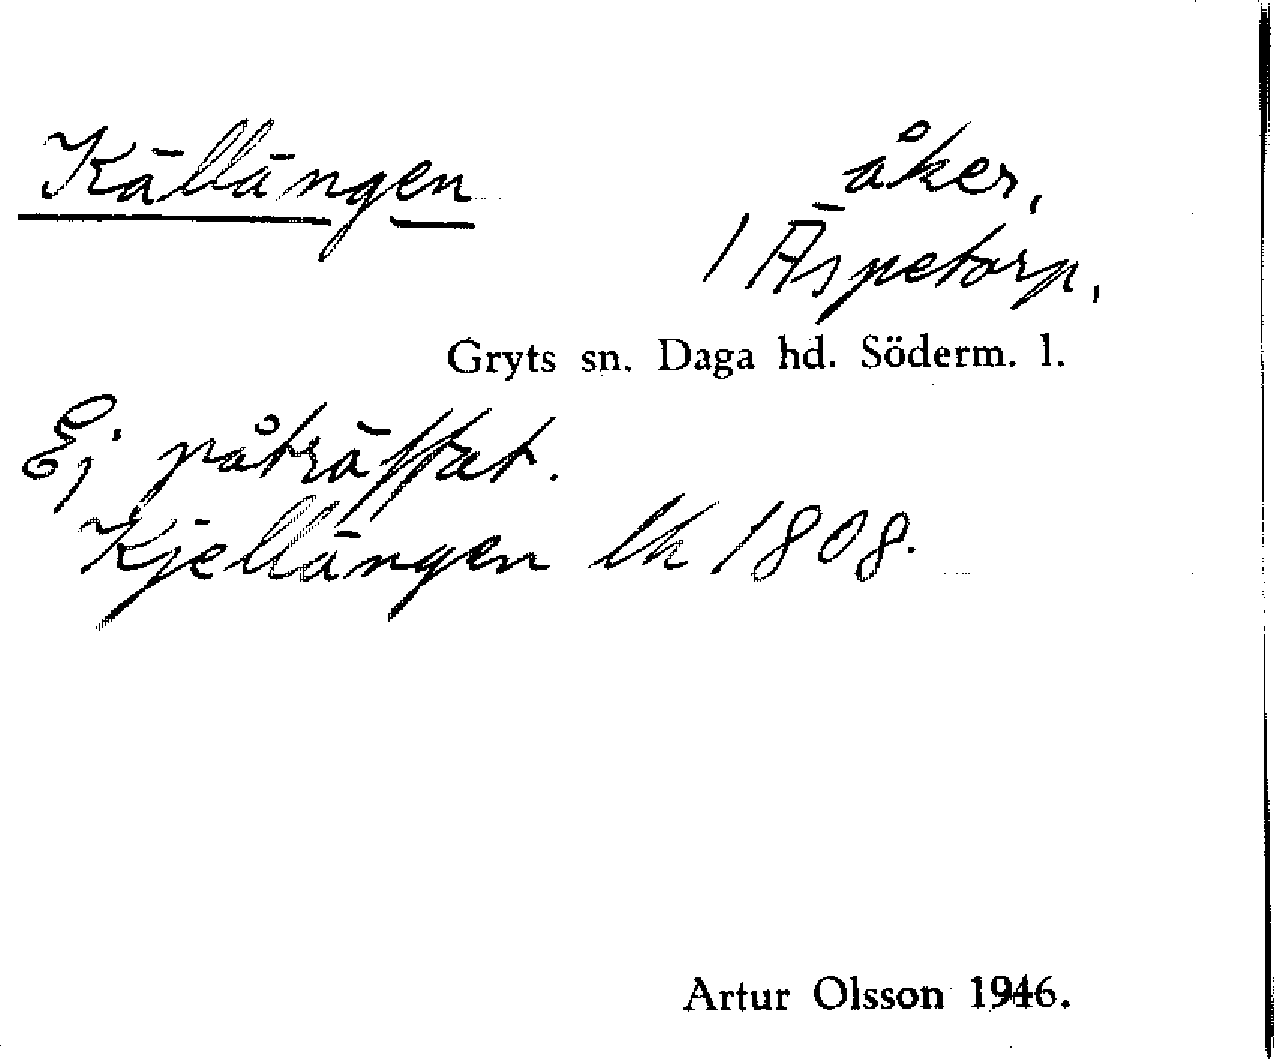 Källängen
åker,
1 Äspetorp,
Gryts sn. Daga hd. Söderm. l.
Ej påträffat.
Kjellängen lh 1808.
Artur Olsson 1946.